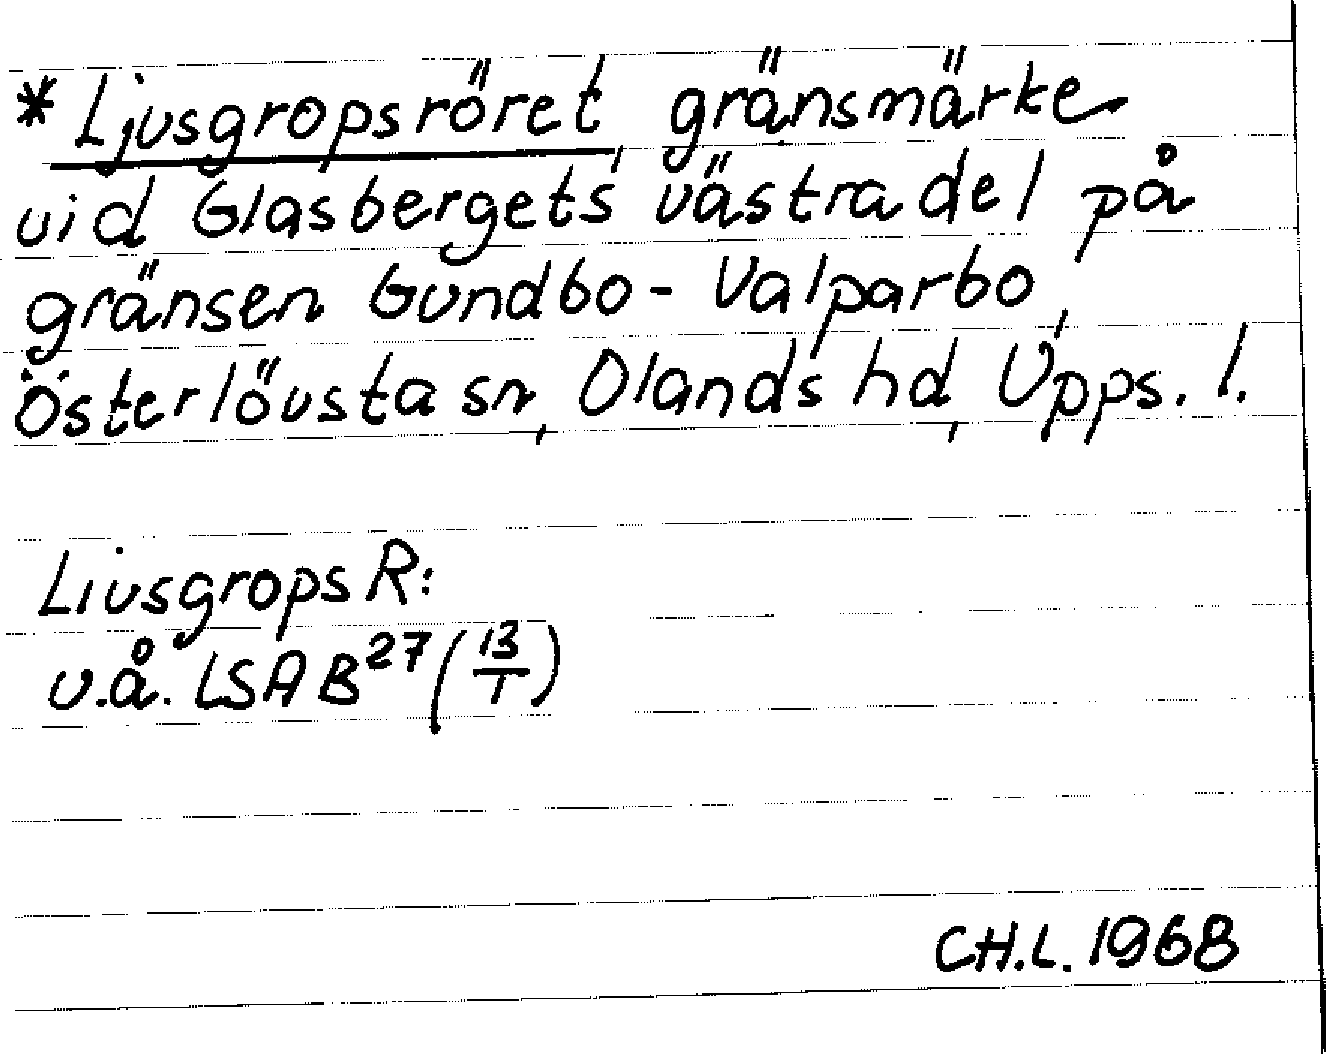 * Ljusgropsröret, gränsmärke
vid Glasbergets västra del på
gränsen Gundbo - Valparbo,
Österlövsta sn, Olands hd, Upps. l.
Liusgrops R:
u.å. LSA B²⁷ (13/1)
CH.L. 1968